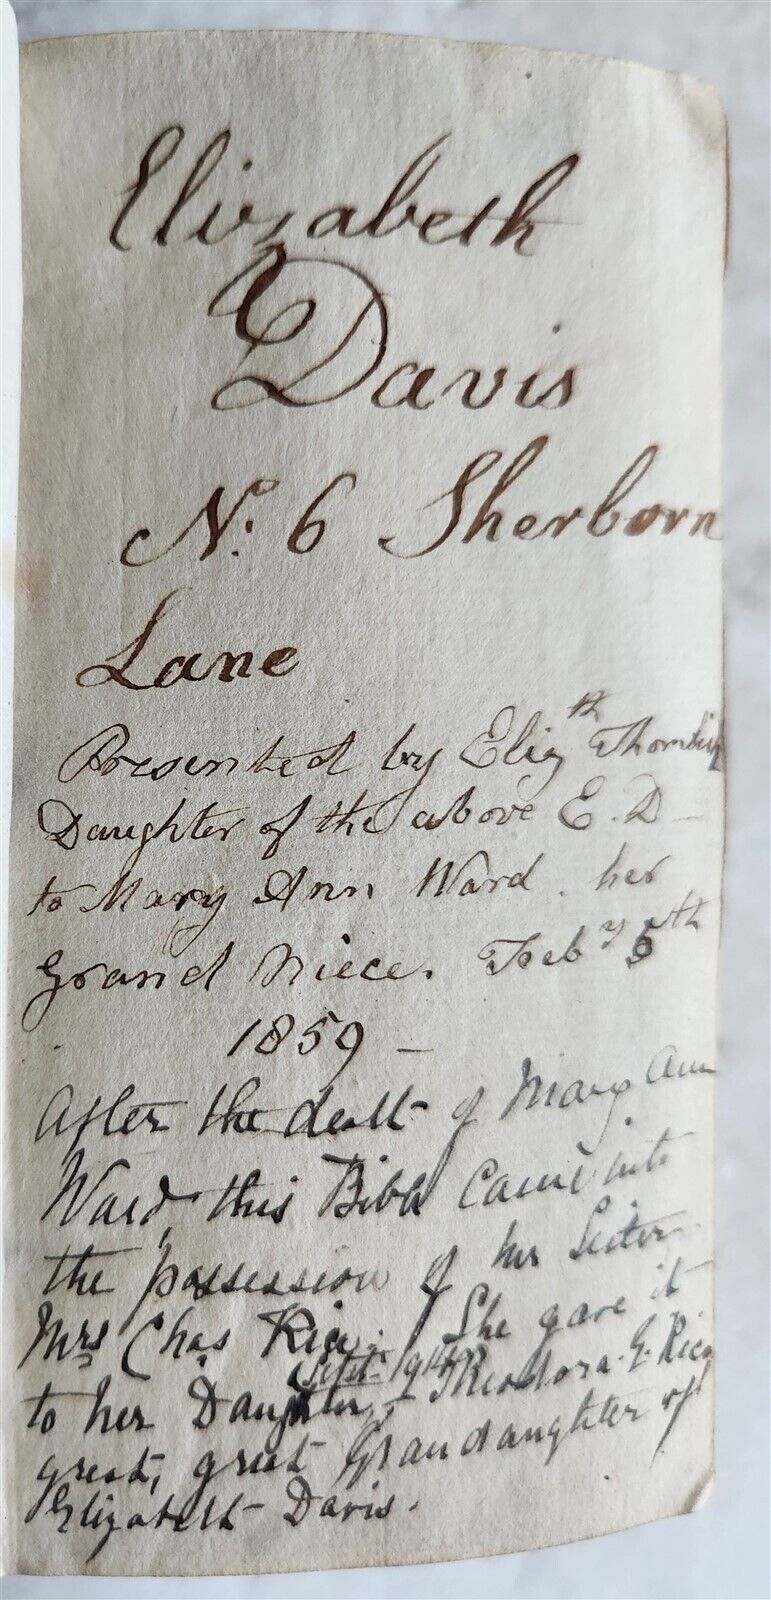 Elizabeth
Davis
No. 6 Sherborn
Lane
Presented by Elizth
Daughter of the above E. D -
to Mary Ann Ward. her
Grand Niece. Feby 5th
1859 -
After the death of Mary Ann
Ward, this Bible came into
the possession of her Sister
Mrs Chas Rice. She gave it
(Sept.
to her Daughter, Theodora. G. Rice
great, great Grandaughter of
Elizabeth Davis.